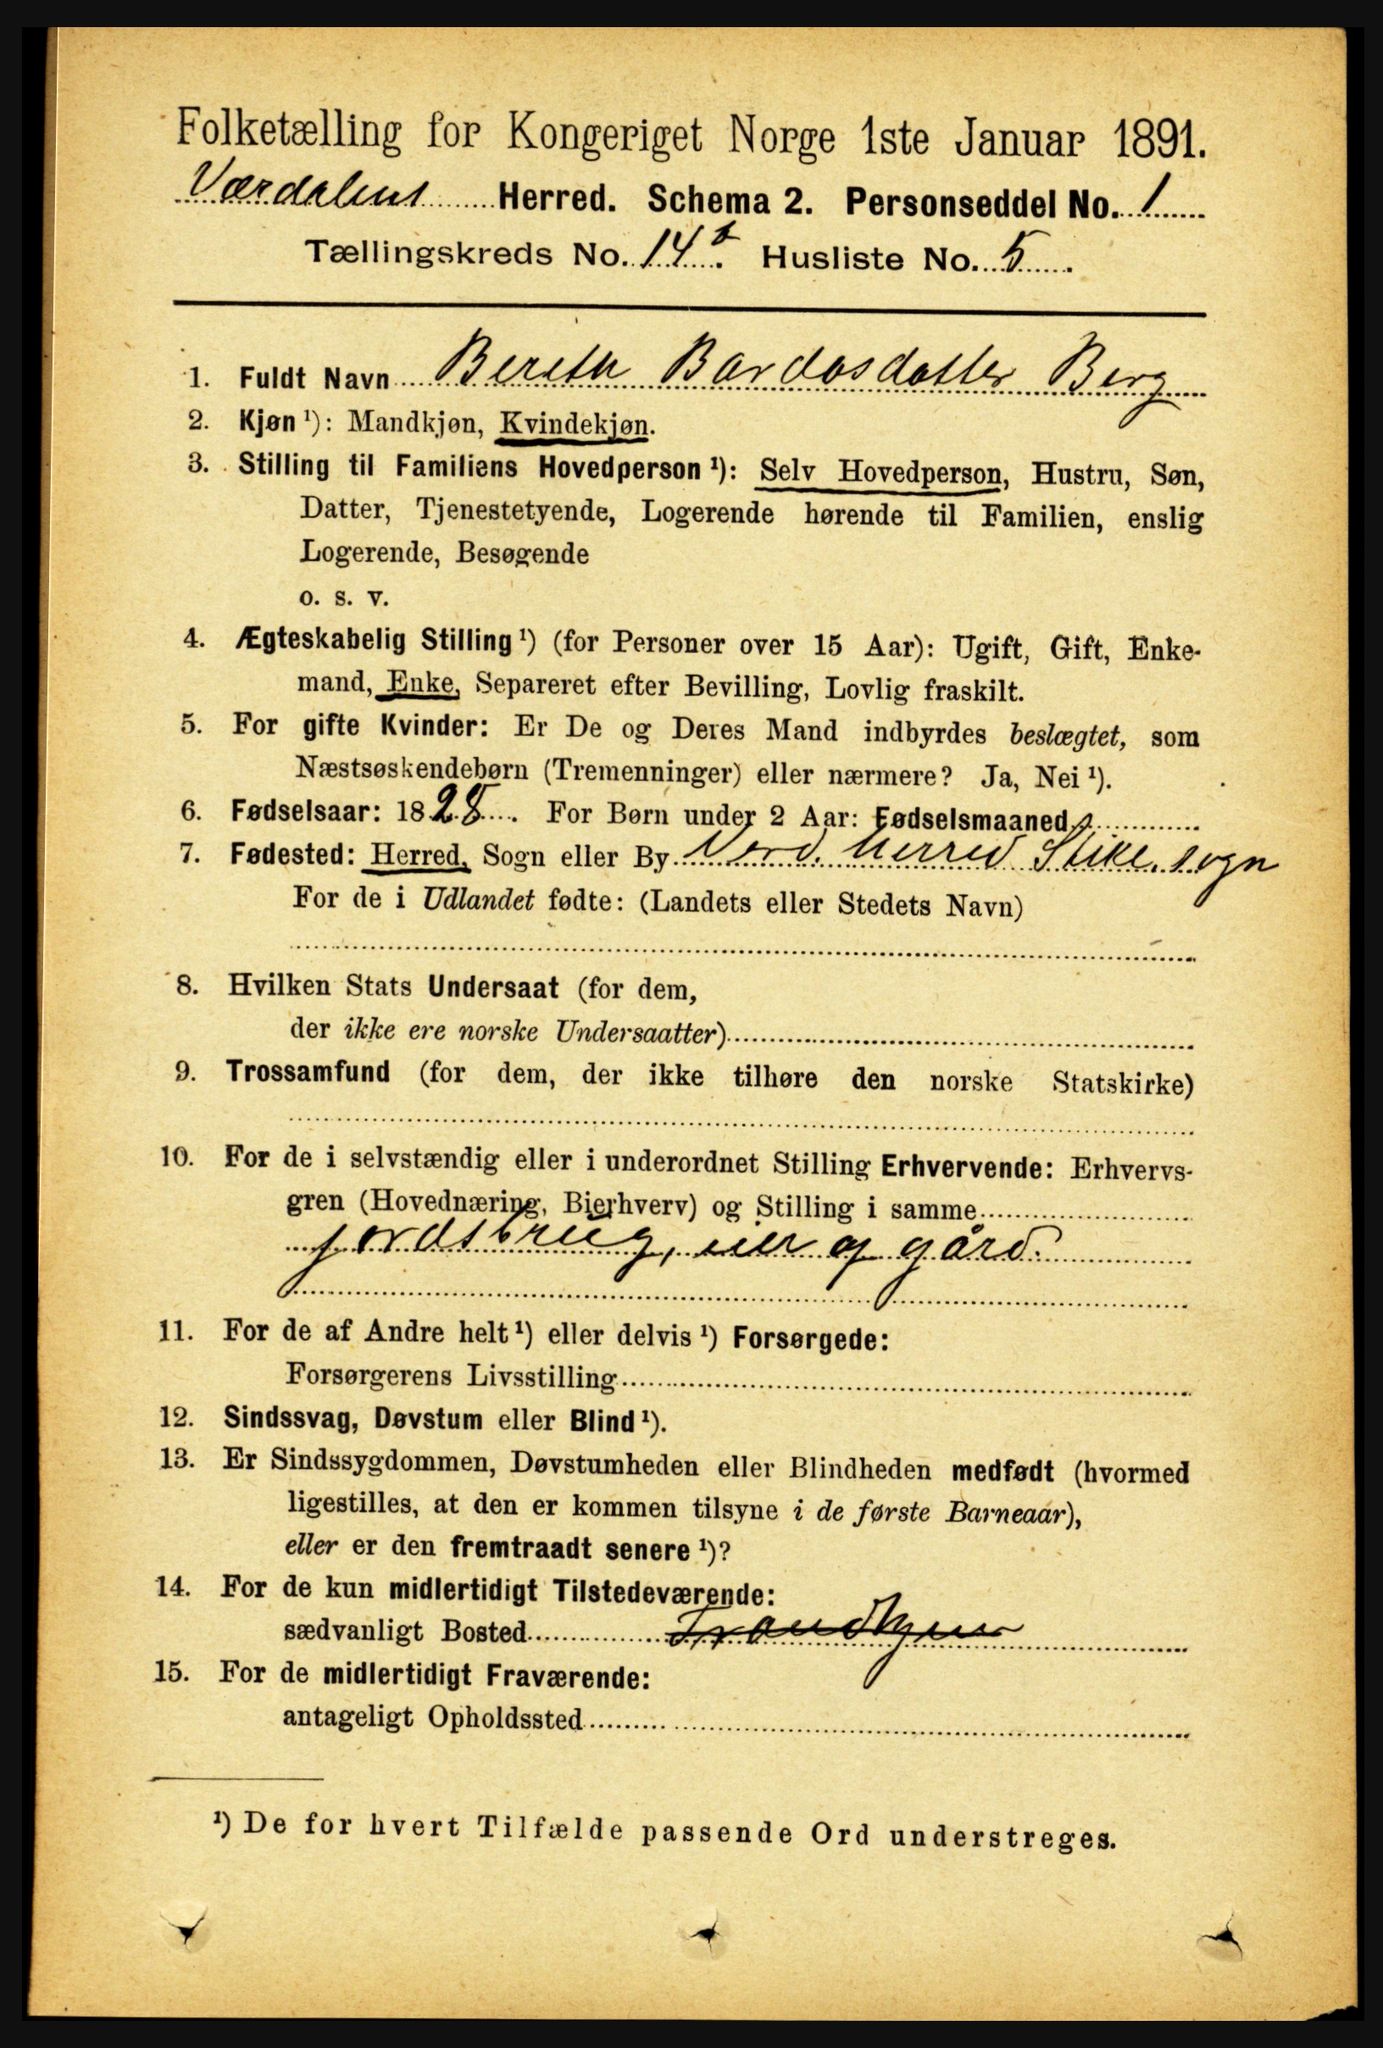 Folketælling for Kongeriget Norge 1ste Januar 1891.
Værdalens Herred. Schema 2. Personseddel No. 1
Tællingskreds No. 14 Husliste No. 5
1. Fuldt Navn Bereth Bardosdatter Berg
2. Kjøn ¹): Mandkjøn, Kvindekjøn.
3. Stilling til Familiens Hovedperson ¹): Selv Hovedperson, Hustru, Søn,
Datter, Tjenestetyende, Logerende hørende til Familien, enslig
Logerende, Besøgende
o. s. v.
4. Ægteskabelig Stilling ¹) (for Personer over 15 Aar): Ugift, Gift, Enke-
mand, Enke, Separeret efter Bevilling, Lovlig fraskilt.
5. For gifte Kvinder: Er De og Deres Mand indbyrdes beslægtet, som
Næstsøskendebørn (Tremenninger) eller nærmere? Ja, Nei ¹).
6. Fødselsaar: 1828. For Børn under 2 Aar: Fødselsmaaned
7. Fødested: Herred, Sogn eller By Verd. herred Stikl. sogn
For de i Udlandet fødte: (Landets eller Stedets Navn)
8. Hvilken Stats Undersaat (for dem,
der ikke ere norske Undersaatter)
9. Trossamfund (for dem, der ikke tilhøre den norske Statskirke)
10. For de i selvstændig eller i underordnet Stilling Erhvervende: Erhvervs-
gren (Hovednæring, Bierhverv) og Stilling i samme
jordsbrug, eier og gård.
11. For de af Andre helt ¹) eller delvis ¹) Forsørgede:
Forsørgerens Livsstilling
12. Sindssvag, Døvstum eller Blind ¹).
13. Er Sindssygdommen, Døvstumheden eller Blindheden medfødt (hvormed
ligestilles, at den er kommen tilsyne i de første Barneaar),
eller er den fremtraadt senere ¹)?
14. For de kun midlertidigt Tilstedeværende:
sædvanligt Bosted
15. For de midlertidigt Fraværende:
antageligt Opholdssted
¹) De for hvert Tilfælde passende Ord understreges.